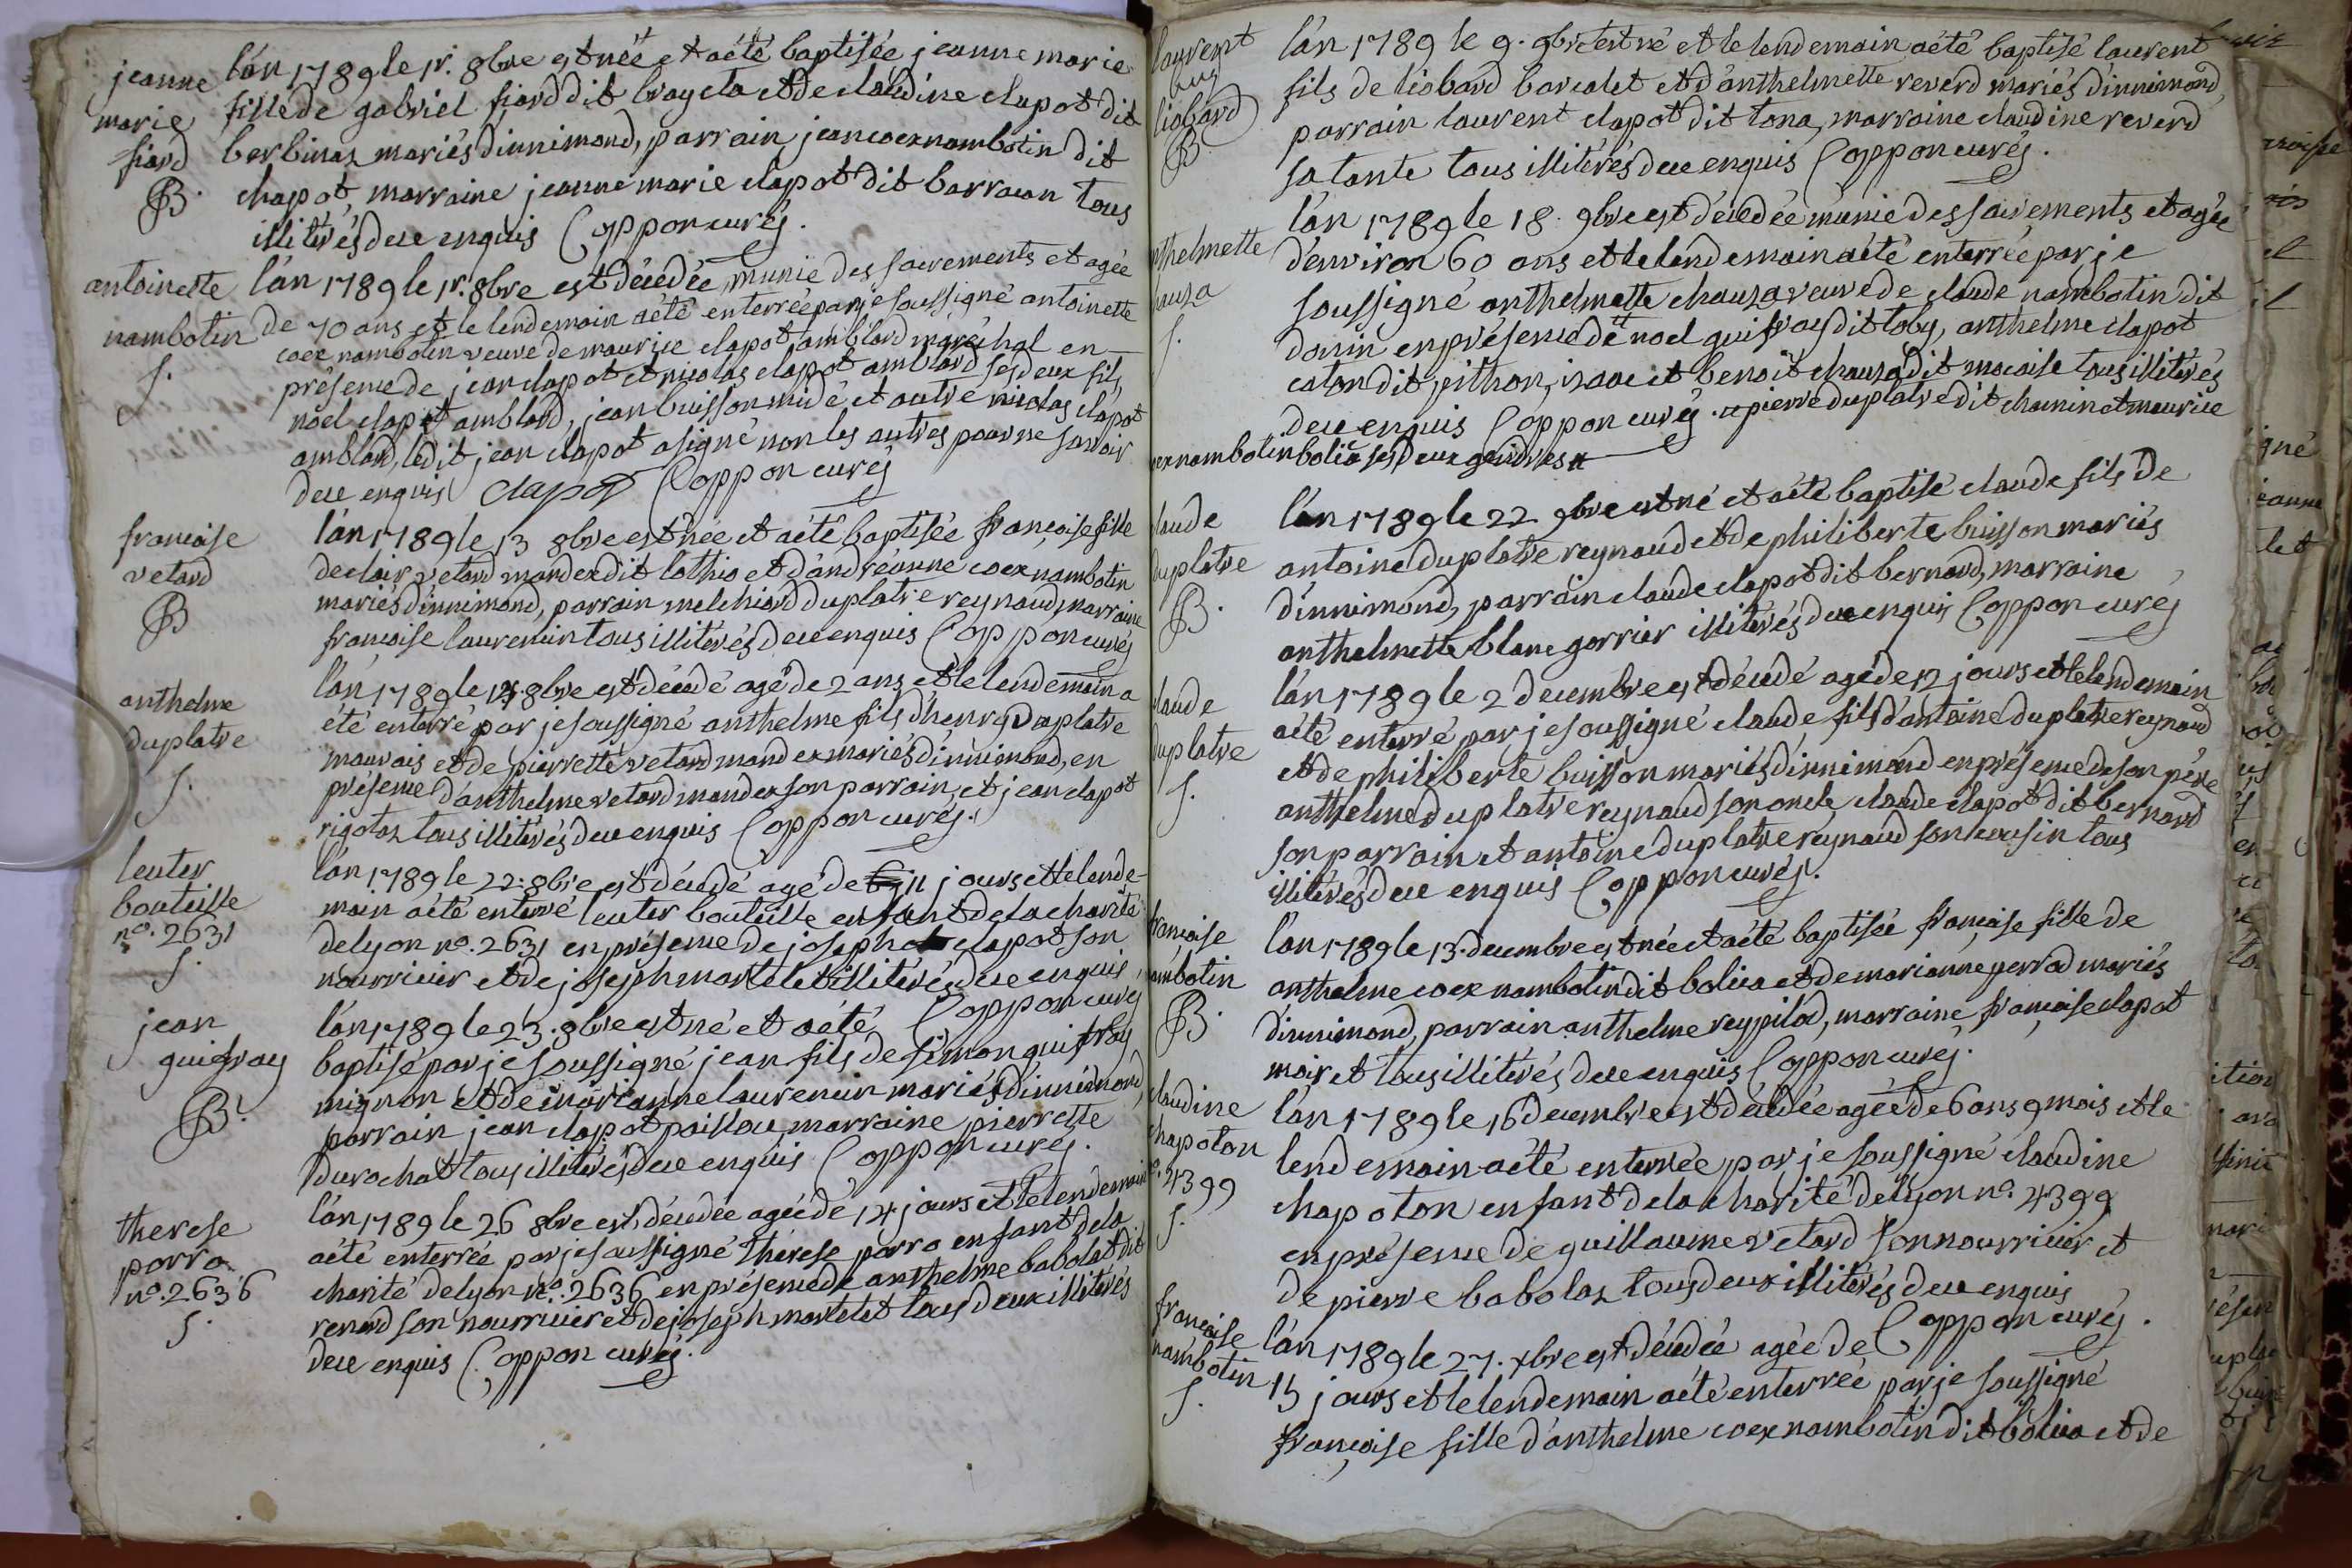 jeanne
marie
fiard
B.
l'an 1789 le pr. 8bre est née et a été baptisée jeanne marie
fille de gabriel fiard dit brayeta et de claudine clapot dit
berbinaz mariés d'innimond, parrain jean coex nambotin dit
chapot, marraine jeanne marie clapot dit barracan tous
illitérés dece enquis Coppon curé.
antoinette
nambotin
S.
l'an 1789 le pr. 8bre est décédée munie des sacrements et agée
de 70 ans et le lendemain a été enterrée par je soussigné antoinette
coex nambotin veuve de maurice clapot amblard maréchal en
présence de jean clapot et nicolas clapot amblard ses deux fils,
noel clapot amblard, jean buisson midé et autre nicolas clapot
amblard, ledit jean clapot a signé non les autres pour ne savoir
dece enquis clapot Coppon curé
francoise
vetard
B
l'an 1789 le 13 8bre est née et a été baptisée françoise fille
de clair vetard mandex dit lathio et d'andréanne coex nambotin
mariés d'innimond, parrain melchiord duplatre reynaud, marraine
francoise laurencin tous illitérés dece enquis Coppon curé
anthelme
duplatre
S.
l'an 1789 le 14 8bre est décédé agé de 2 ans et le lendemain a
été enterré par je soussigné anthelme fils d'henry duplatre
mauvais et de pierrette vetard mandex mariés d'innimond, en
présence d'anthelme vetard mandex son parrain, et jean clapot
rigotaz tous illitérés dece enquis Coppon curé.
leuter
bouteille
no. 2631
S.
l'an 1789 le 22. 8bre est décédé agé de 11 jours et le lende-
main a été enterré leuter bouteille enfant de la charité
de lyon no. 2631 en présence de joseph clapot son
nourricier et de joseph martelet illitérés dece enquis
Coppon curé
jean
guifray
B.
l'an 1789 le 23. 8bre est né et a été
baptisé par je soussigné jean fils de simon guifray
mignon et de marianne laurencin mariés d'innimond,
parrain jean clapot paillou, marraine pierrette
durochat tous illitérés dece enquis Coppon curé.
therese
parra
no. 2636
S.
l'an 1789 le 26 8bre est décédée agée de 14 jours et le lendemain
a été enterrée par je soussigné thérese parra enfant de la
charité de lyon no. 2636 en présence de anthelme babolat dit
renard son nourricier et de joseph martelet tous deux illitérés
dece enquis Coppon curé.
laurent
liobard
B.
l'an 1789 le 9. 9bre est né et le lendemain a été baptisé laurent
fils de liobard barcalet et d'anthelmette reverd mariés d'innimond,
parrain laurent clapot dit tona, marraine claudine reverd
sa tante tous illitérés dece enquis Coppon curé.
nthelmette
hauza
S.
l'an 1789 le 18. 9bre est décédée munie des sacrements et agée
d'environ 60 ans et le lendemain a été enterrée par je
soussigné anthelmette chauza veuve de claude nambotin dit
donin en présence de noel guifray dit toby, anthelme clapot
caton dit pithon, isaac et benoit chauza dit macaise tous illitérés
dece enquis Coppon curé. pierre duplatre dit chamin et maurice
ex nambotin bolica ses deux gendres
laude
duplatre
B.
l'an 1789 le 22 9bre est né et a été baptisé claude fils de
antoine duplatre reynaud et de philiberte buisson mariés
d'innimond, parrain claude clapot dit bernard, marraine
anthelmette blanc gorrier illitérés dece enquis Coppon curé
laude
duplatre
S.
l'an 1789 le 2 decembre est décédé agé de 12 jours et le lendemain
a été enterré par je soussigné claude fils d'antoine duplatre reynaud
et de philiberte buisson mariés d'innimond en présence de son père
anthelme duplatre reynaud son oncle, claude clapot dit bernard
son parrain et antoine duplatre reynaud son cousin tous
illitérés dece enquis Coppon curé.
francoise
ambotin
B.
l'an 1789 le 13. decembre est née et a été baptisée francoise fille de
anthelme coex nambotin dit bolica et de marianne perrod mariés
d'innimond, parrain anthelme reypilod, marraine françoise clapot
mairet tous illitérés dece enquis Coppon curé.
laudine
chapoton
o. 4399
S.
l'an 1789 le 16 decembre est décédée agée de 6 ans 9 mois et le
lendemain a été enterrée par je soussigné claudine
chapoton enfant de la charité de lyon no. 4399
en présence de guillaume vetard son nourricier et
de pierre babolaz tous deux illitérés dece enquis
Coppon curé.
françoise
nambotin
S.
l'an 1789 le 27. xbre est décédée agée de
15 jours et le lendemain a été enterrée par je soussigné
françoise fille d'anthelme coex nambotin dit bolica et de